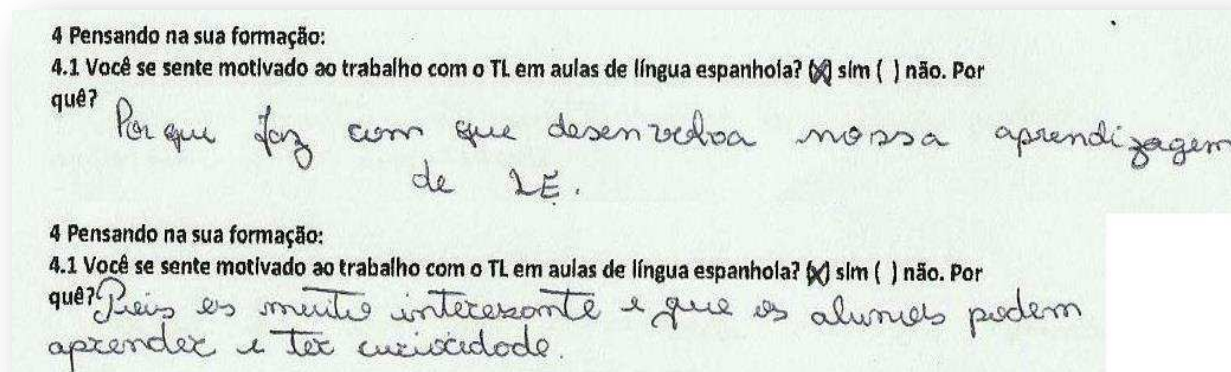 4 Pensando na sua formação:
4.1 Você se sente motivado ao trabalho com o TL em aulas de língua espanhola? (x) sim ( ) não. Por
quê? Porque faz com que desenvolva nossa aprendizagem
de LE.
4 Pensando na sua formação:
4.1 Você se sente motivado ao trabalho com o TL em aulas de língua espanhola? (x) sim ( ) não. Por
quê? Pois es muito interesante e que os alunos podem
aprender e ter curiocidade.